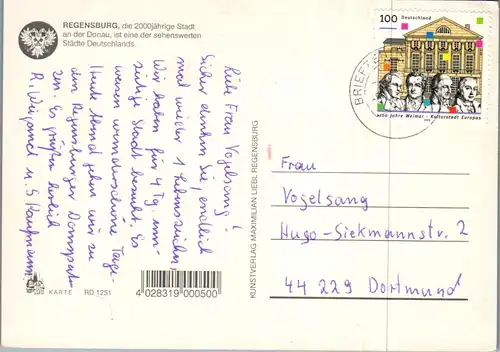 REGENSBURG, die 2000jährige Stadt
an der Donau, ist eine der sehenswerten
Städte Deutschlands.
Liebe Frau Vogelsang!
Sicher denken Sie, endlich
mal wieder 1 Lebenszeichen,
Wir haben für 4 Tg. un-
sere Stadt besucht. Es
waren wunderschöne Tage.
Heute Abend gehen wir zu
den Regensburger Domspat-
zen. Es grüßen herzlich
R. Wiegand u. S. Kaufmann
KARTE RD 1251
4 028319 000500
KUNSTVERLAG MAXIMILIAN LIEBL REGENSBURG
100 Deutschland
Jahre Weimar – Kulturstadt Europas
BRIEF
Frau
Vogelsang
Hugo-Siekmannstr. 2
44 229 Dortmund